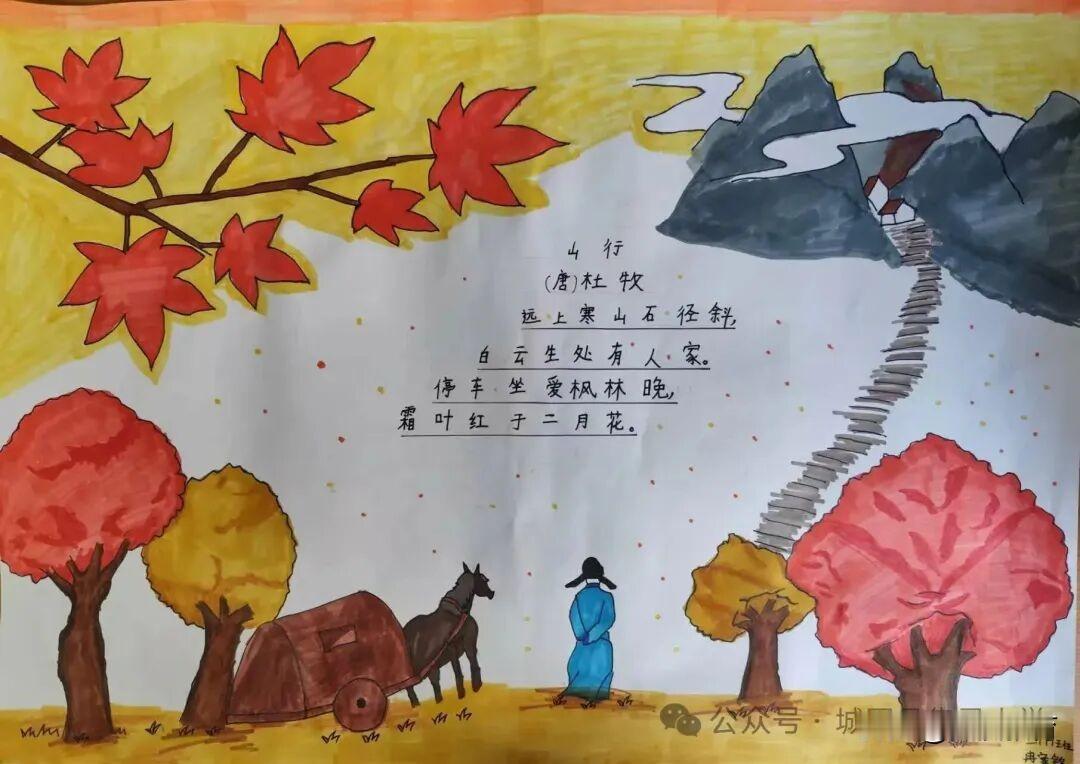 山行
(唐)杜牧
远上寒山石径斜,
白云生处有人家。
停车坐爱枫林晚,
霜叶红于二月花。
公众号·城